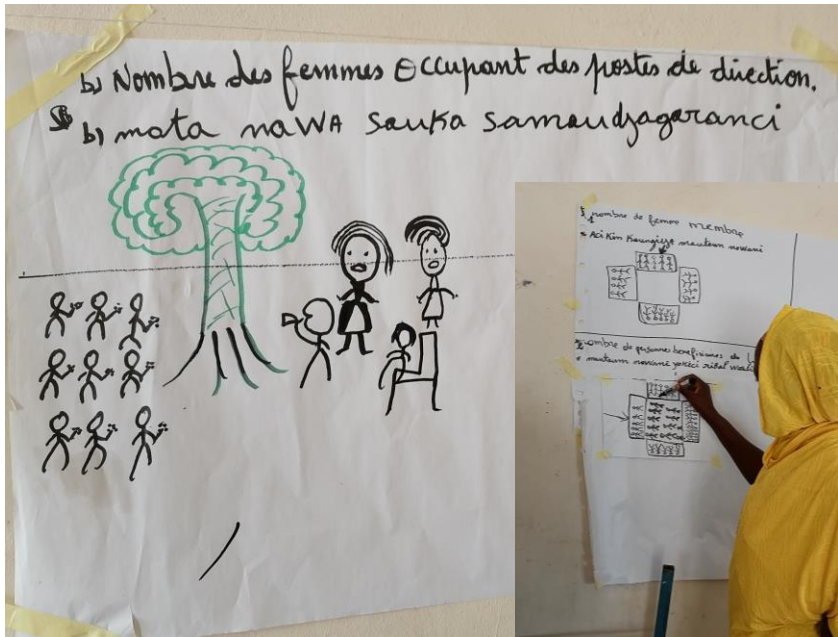 b) Nombre des femmes Occupant des postes de direction.
b) mata naWA sauka samoudjagaranci
nombre de femme membre
Aci Kin Koungiyar
nombre de personnes beneficiaires de